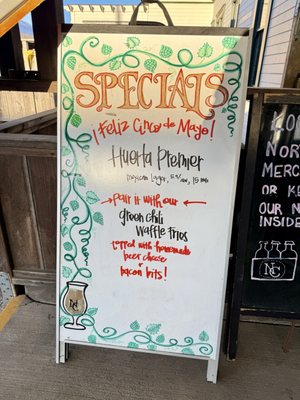 SPECIALS
¡Feliz Cinco de Mayo!
Huerta Premier
mexican Lager,
→ pair it with our ←
green chili
waffle fries
topped with homemade
beer cheese
+
bacon bits!
NC
NOR
MERC
OR KE
OUR N
INSID
NC